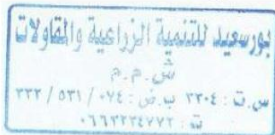 بورسعيد للتنمية الزراعية والمقاولات
ش. م. م
س. ت : ٣٣٠٤ ب. ض : ٠٧٤ / ٥٣١ / ٣٣٣
ت : ٠٦٦٣٣٣٤٧٧٢